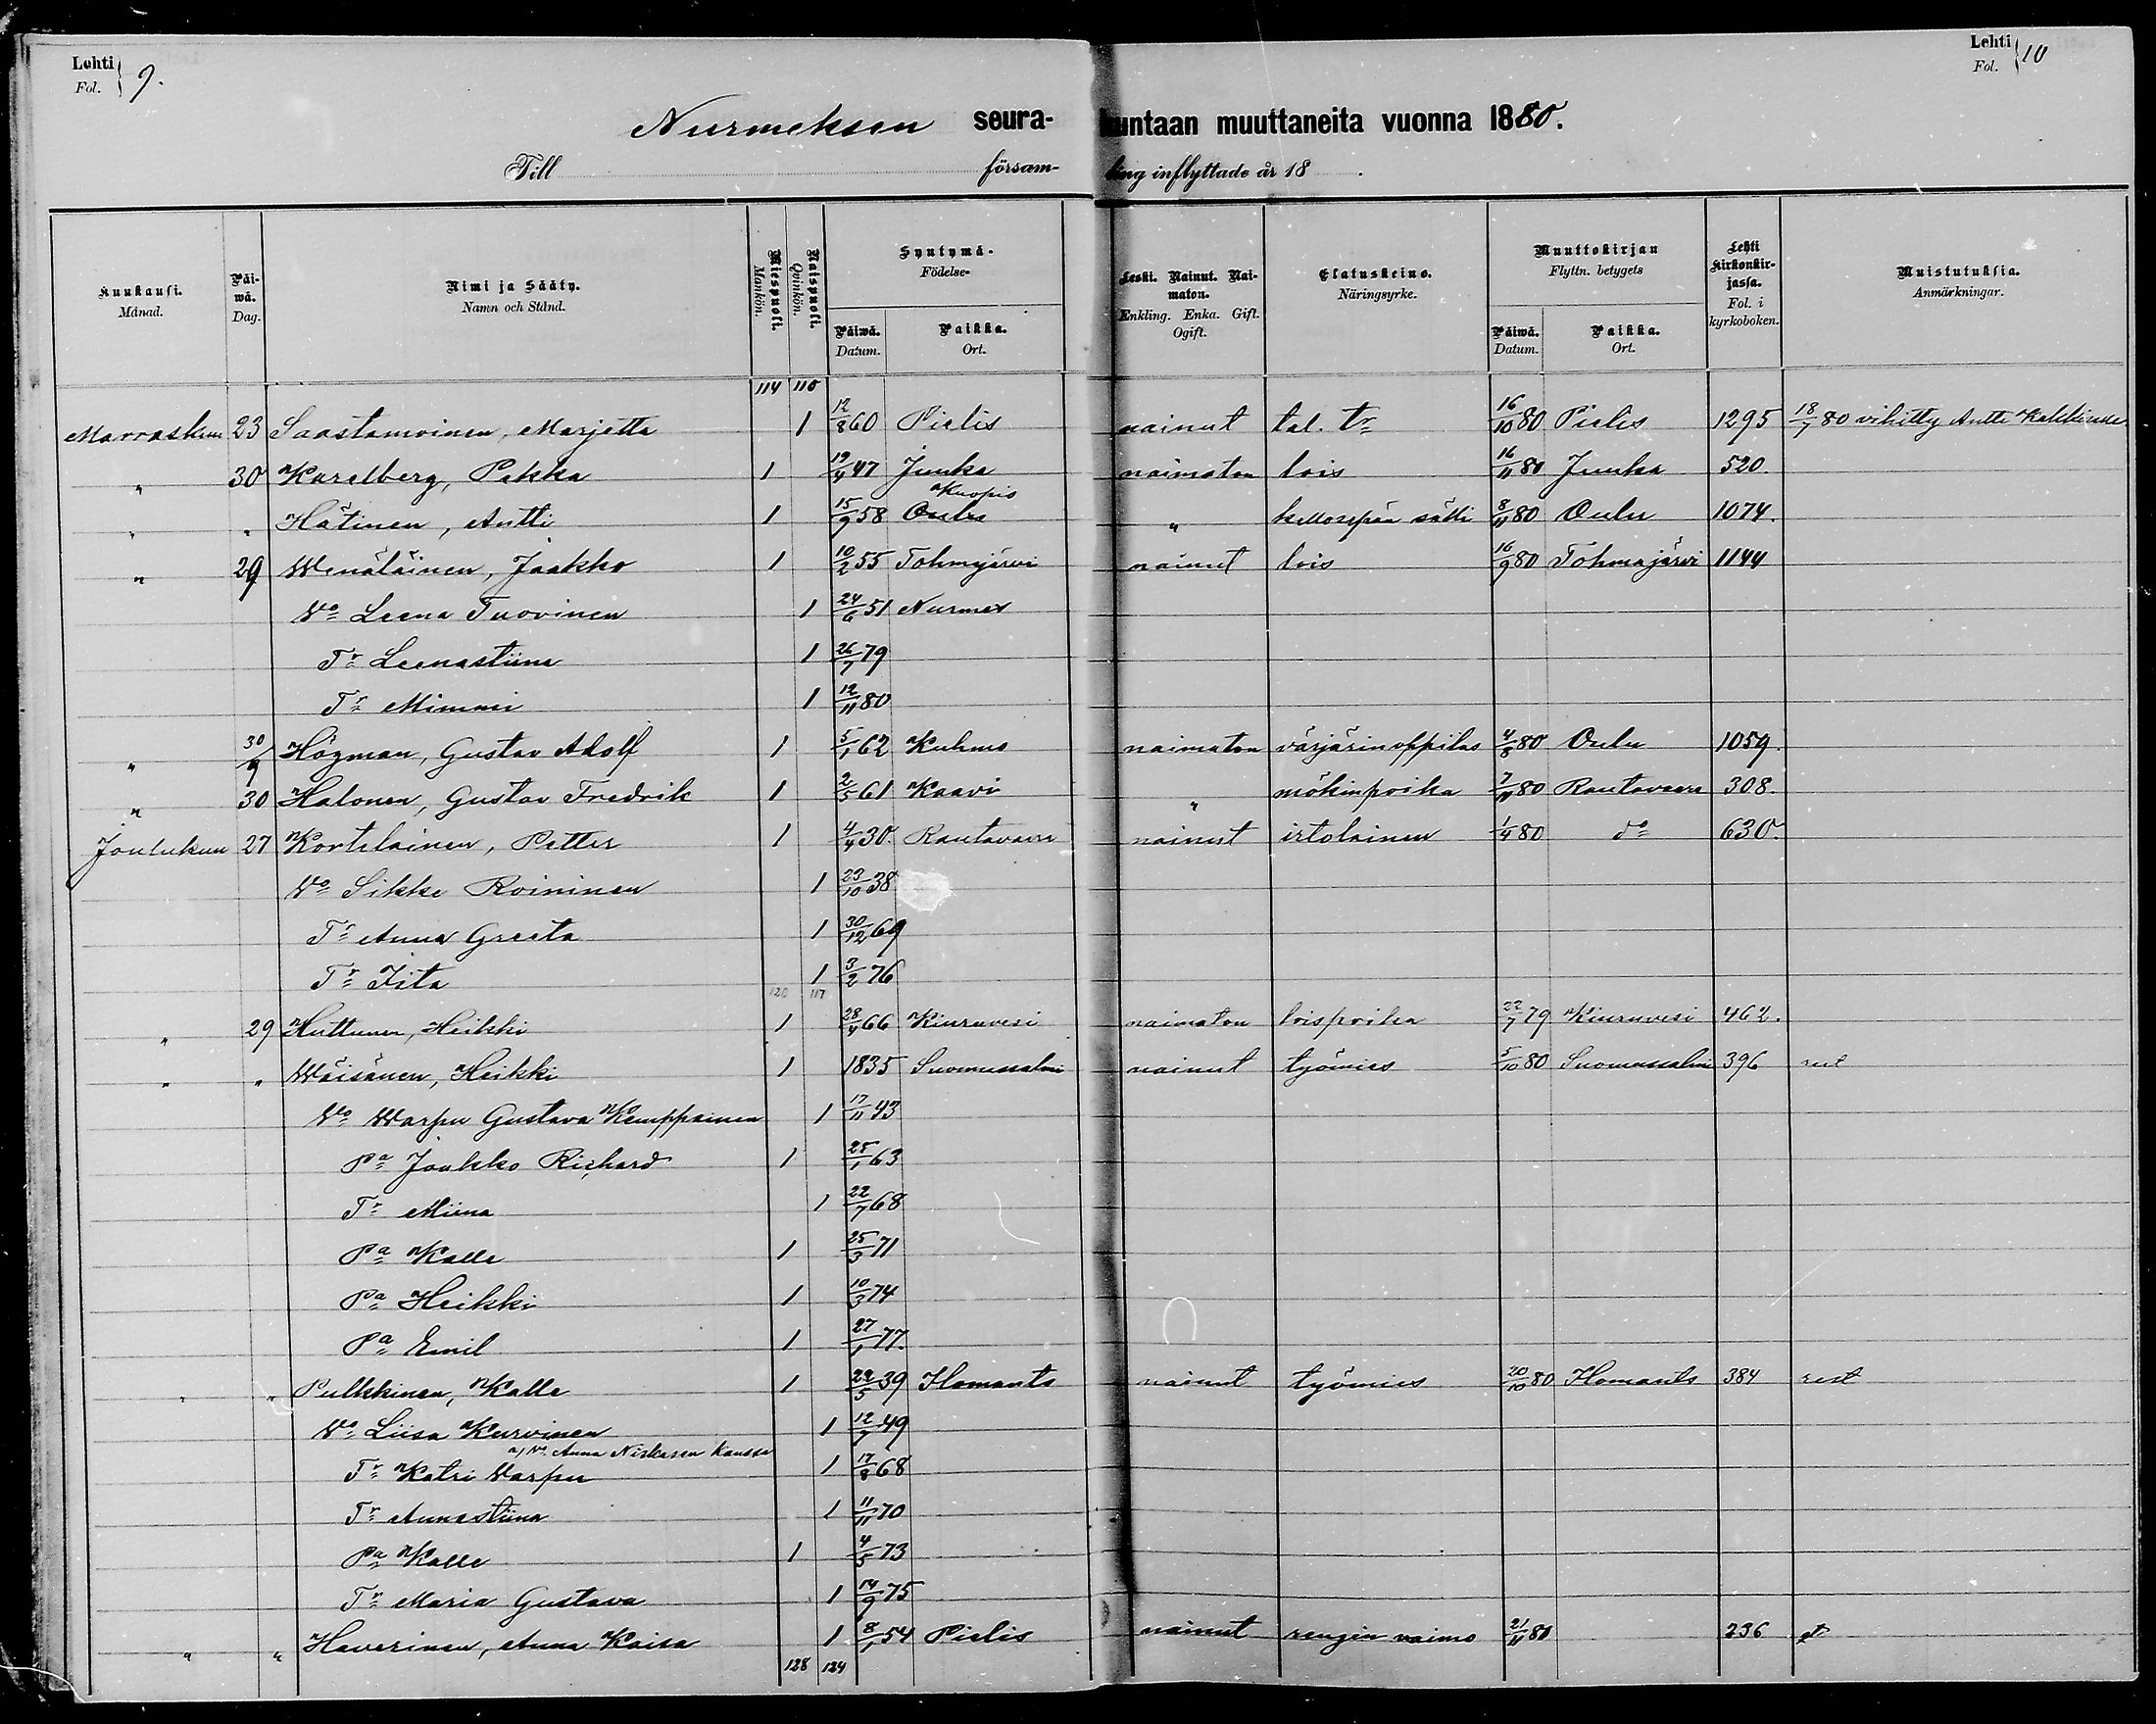 Lehti
Fol. } 9.
Lehti
Fol. } 10
Nurmeksen seura- kuntaan muuttaneita vuonna 1880.
Till församling inflyttade år 18 .
Kuukausi. Månad. | Päiwä. Dag. | Nimi ja Sääty. Namn och Stånd. | Miespuoli. Mankön. | Naispuoli. Qvinkön. | Syntymä- Födelse- Päiwä. Datum. | Paikka. Ort. | Leski. Nainut. Naimaton. Enkling. Enka. Gift. Ogift. | Elatuskeino. Näringsyrke. | Muuttokirjan Flyttn. betygets Päiwä. Datum. | Paikka. Ort. | Lehti kirkonkirjassa. Fol. i kyrkoboken. | Muistutuksia. Anmärkningar.
114 110
Marraskuu 23 Saastamoinen, Marjetta 1 12/8 60 Pielis nainut tal. tr 16/10 80 Pielis 1295 18/7 80 vihitty Antti
" 30 Karelberg, Pekka 1 19/4 47 Juuka naimaton lois 16/11 80 Juuka 520.
Kuopio
" " Hätinen, Antti 1 15/9 58 Oulu " kellosepän sälli 8/11 80 Oulu 1074.
" 29 Wenäläinen, Jaakko 1 10/2 55 Tohmajärvi nainut lois 16/9 80 Tohmajärvi 1144
Vo Leena Tuovinen 1 24/6 51 Nurmes
Tr Leenastiina 1 26/7 79
Tr Mimmi 1 12/11 80
" 30/9 Högman, Gustav Adolf 1 5/1 62 Kuhmo naimaton värjärinoppilas 4/8 80 Oulu 1059.
" 30 Halonen, Gustav Fredrik 1 2/5 61 Kaavi " mökinpoika 7/11 80 Rautavaara 308.
Joulukuu 27 Kortelainen, Petter 1 4/4 30. Rautavaara nainut irtolainen 1/4 80 do 630.
Vo Sikke Roininen 1 23/10 38
Tr Anna Greeta 1 30/12 69
Tr Iita 1 3/2 76
120 117
" 29 Huttunen, Heikki 1 28/4 66 Kiuruvesi naimaton loispoika 22/7 79 Kiuruvesi 462.
" " Wäisänen, Heikki 1 1835 Suomussalmi nainut työmies 5/10 80 Suomussalmi 396
Vo Warpu Gustava Kemppainen 1 17/11 43
Pa Jaakko Richard 1 25/1 63
Tr Miina 1 22/7 68
Pa Kalle 1 25/3 71
Pa Heikki 1 10/3 74
Pa Emil 1 27/1 77.
" " Pulkkinen, Kalle 1 22/5 39 Ilomants nainut työmies 20/10 80 Ilomants 384 rest
Vo Liisa Kurvinen 1 12/7 49
a) Vo Anna Niskasen kanssa
Tr Katri Varpu 1 17/8 68
Tr Annastiina 1 11/11 70
Pa Kalle 1 4/5 73
Tr Maria Gustava 1 14/9 75
" " Haverinen, Anna Kaisa 1 8/1 54 Pielis nainut rengin vaimo 21/11 80 236
128 124